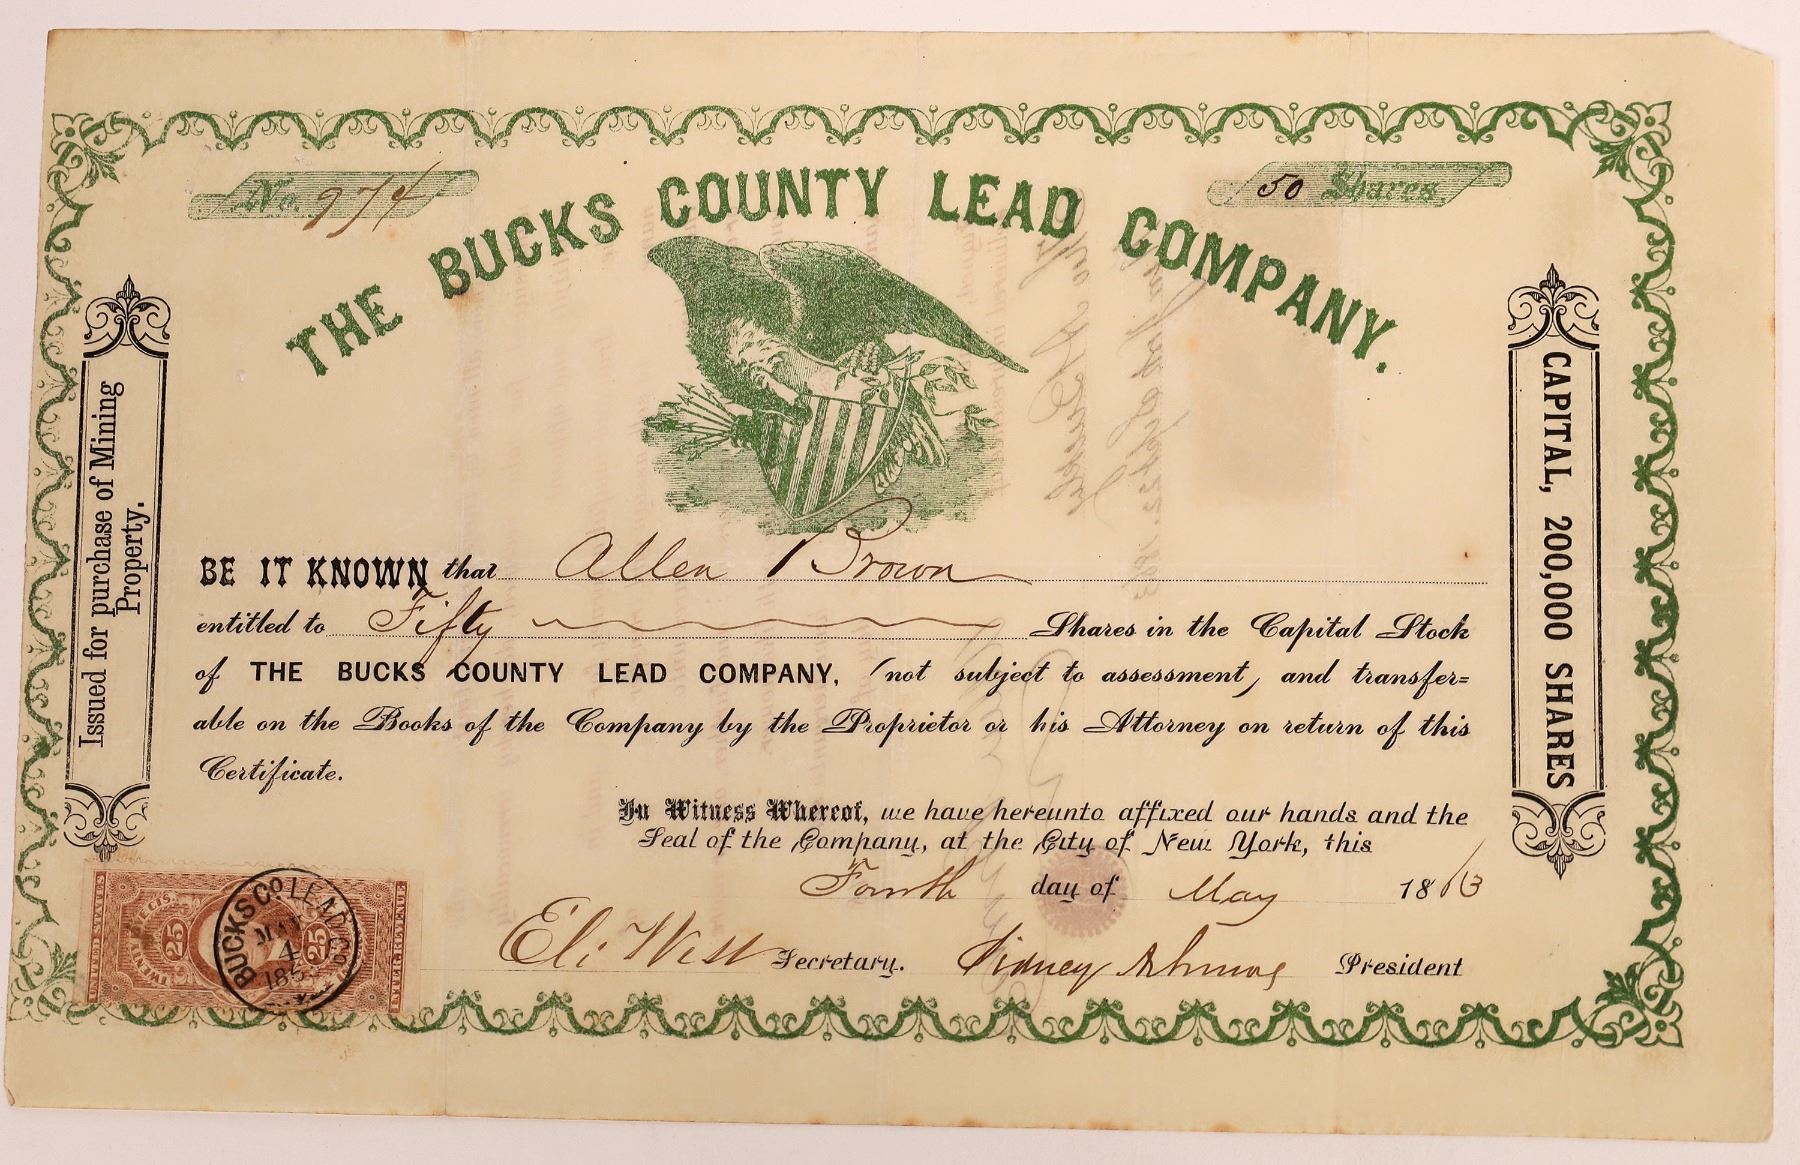 No. 974
50 Shares
THE BUCKS COUNTY LEAD COMPANY.
Issued for purchase of Mining
Property.
CAPITAL, 200,000 SHARES
BE IT KNOWN that Allen Brown
entitled to Fifty Shares in the Capital Stock
of THE BUCKS COUNTY LEAD COMPANY, (not subject to assessment, and transfer=
able on the Books of the Company by the Proprietor or his Attorney on return of this
Certificate.
In Witness Whereof, we have hereunto affixed our hands and the
Seal of the Company, at the City of New York, this
Fourth day of May 1863
Eli West Secretary. Sidney President
UNITED STATES
25
25
INTER. REVENUE
BUCKS CO. LEAD CO.
MAY
4